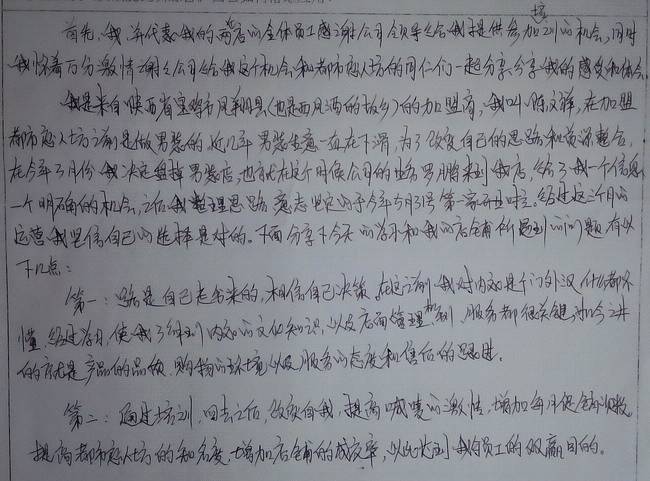 首先,我并代表我的两店的全体员工感谢公司领导给我们提供参加培训的机会,同时
我怀着万分激情谢谢公司给我这个机会和都市恋人坊的同仁们一起分享,分享我的感受和体会。
我是来自陕西省宝鸡市凤翔县(也是西凤酒的故乡)的加盟商,我叫陈文祥,在加盟
都市恋人坊之前是做男装的,近几年男装生意一直在下滑,为了改变自己的思路和资源整合,
在今年3月份我决定盘掉男装店,也就在这个时候公司的业务罗鹏来到我店,给了我一个信息
一个明确的机会,之后我整理思路意志坚定的于今年5月31号第一家店成立,经过这三个月的
运营我坚信自己的选择是对的。下面分享下今天的学习和我的店铺所遇到的问题有以
下几点:
第一:路是自己走出来的,相信自己决策,在这之前我对内衣是个门外汉,什么都不
懂,经过学习,使我了解到内衣的文化知识,以及店面管理,服务都很关键,如今之讲
的就是产品的品质,购物的环境以及服务的态度和售后的跟进。
第二:通过培训,回去之后,改变自我,提高喊麦的激情,增加每月促销次数,
提高都市恋人坊的知名度,增加店铺的成交率,以此达到我和员工的双赢目的。